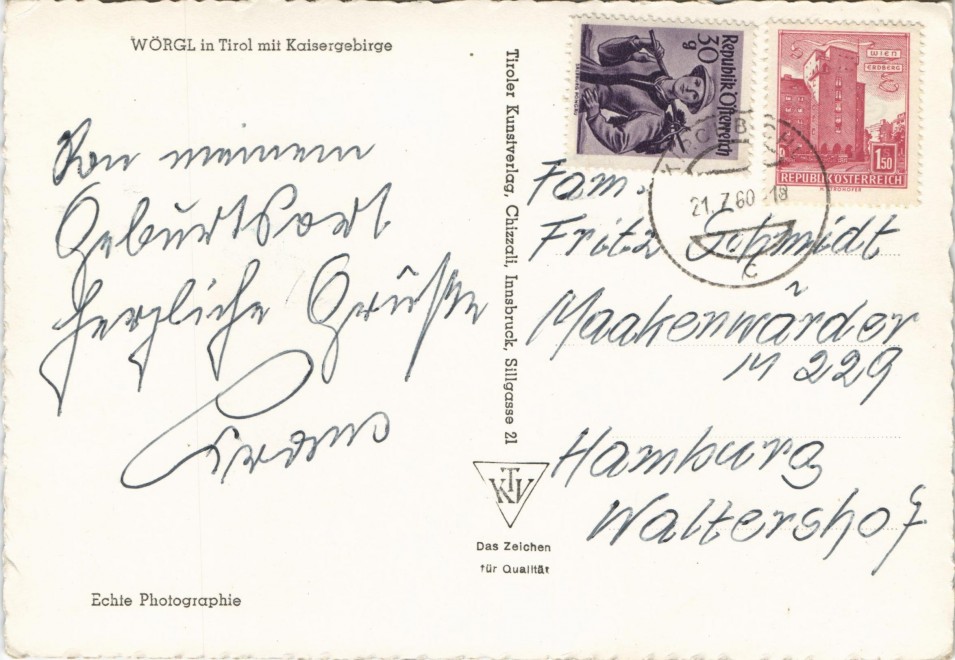 WÖRGL in Tirol mit Kaisergebirge
Von meinem
Geburtsort
herzliche Grüße
Franz
Echte Photographie
Tiroler Kunstverlag, Chizzali, Innsbruck, Sillgasse 21
KTV
Das Zeichen
für Qualität
Republik Österreich
30
g
WIEN
ERDBERG
1 50
REPUBLIK ÖSTERREICH
21. 7. 60 -18
c
Fam.
Fritz Schmidt
Maakenwärder
M 229
Hamburg
Waltershof